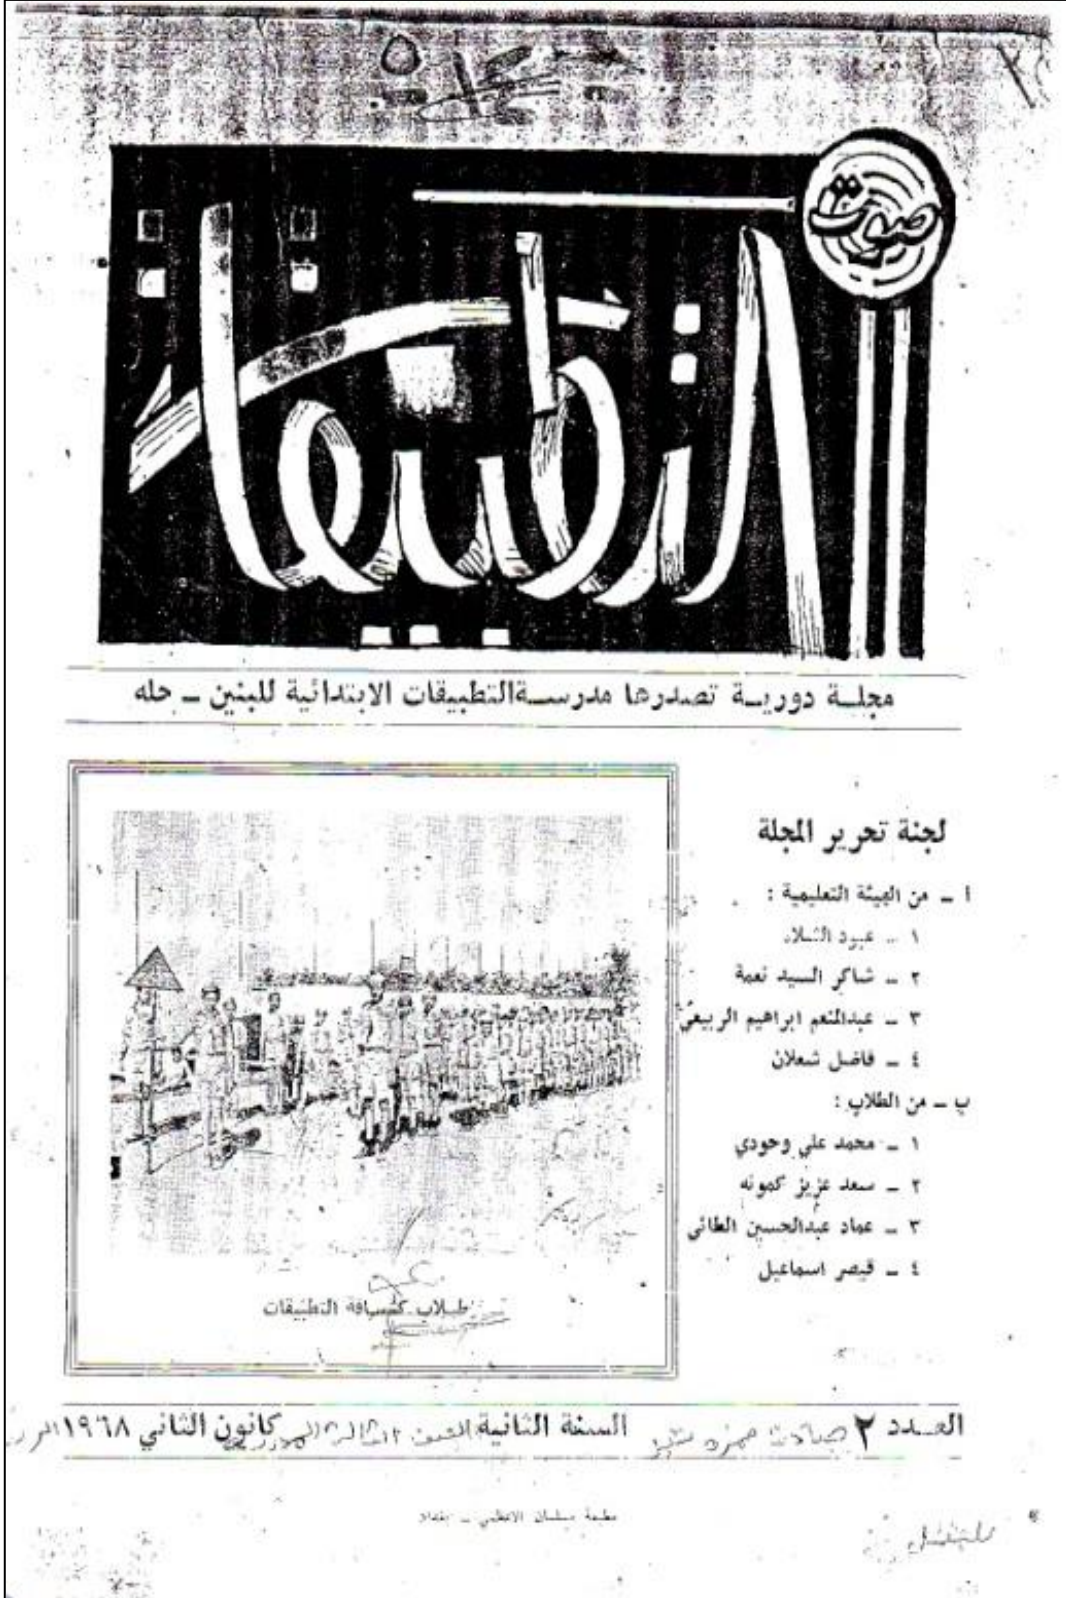 صوت
التطبيقات
مجلة دورية تصدرها مدرسة التطبيقات الابتدائية للبنين ـ حله
لجنة تحرير المجلة
أ ـ من الهيئة التعليمية :
١ ـ عبود الشلاه
٢ ـ شاكر السيد نعمة
٣ ـ عبدالمنعم ابراهيم الربيعي
٤ ـ فاضل شعلان
ب ـ من الطلاب :
١ ـ محمد علي وحودي
٢ ـ سعد عزيز كمونه
٣ ـ عماد عبدالحسين الطائي
٤ ـ قيصر اسماعيل
طلاب كشافة التطبيقات
العدد ٢ السنة الثانية كانون الثاني ١٩٦٨
مطبعة سلمان الاعظمي ـ بغداد